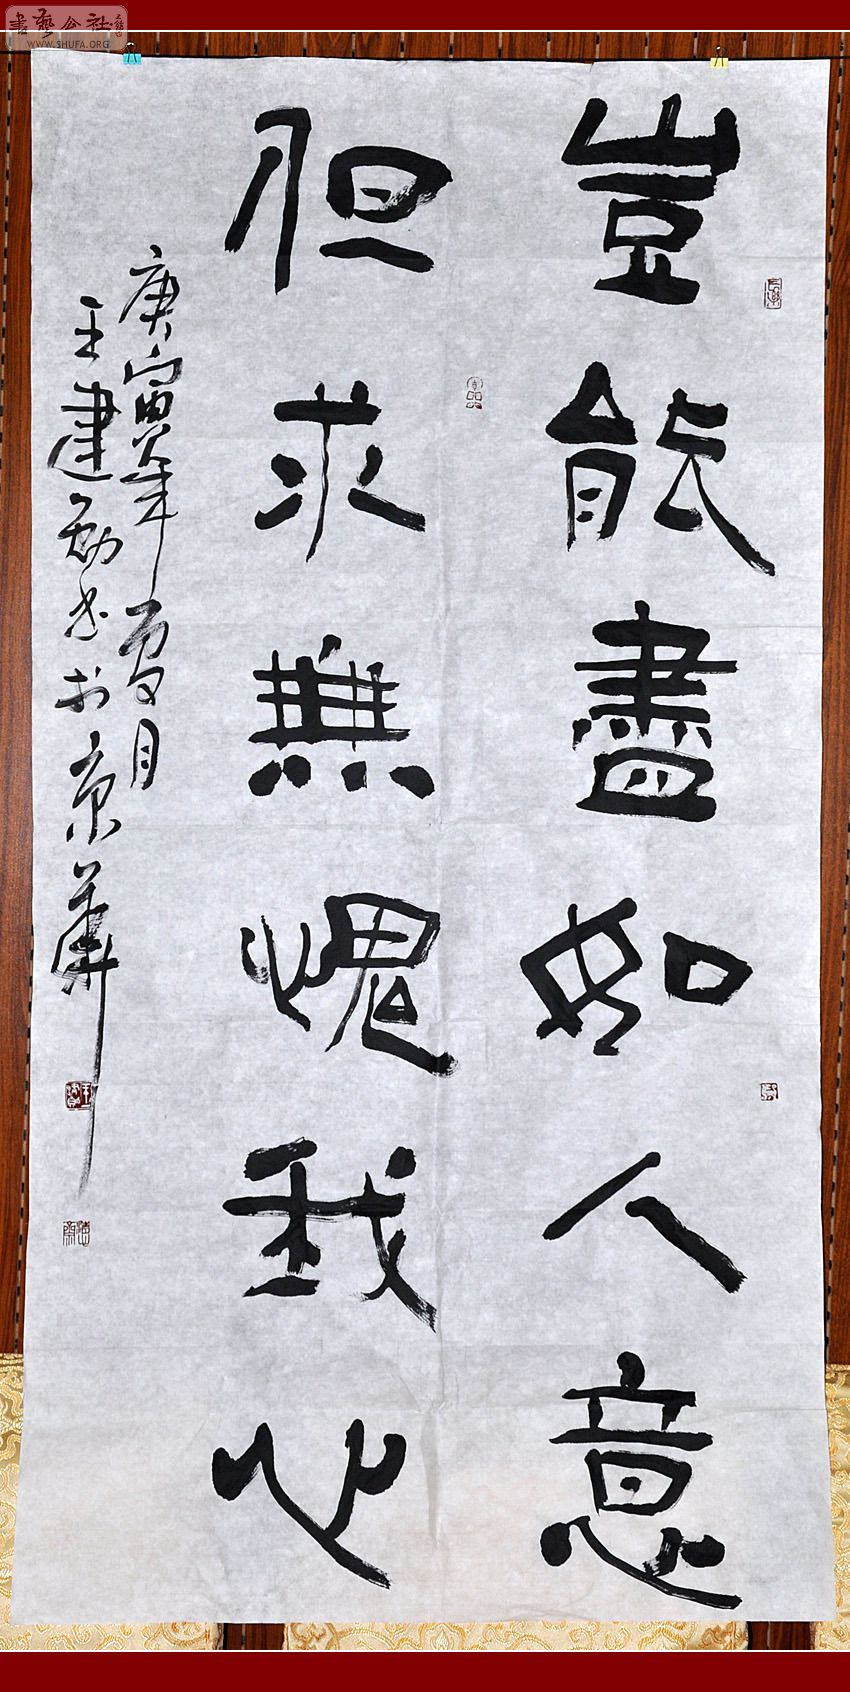 書藝公社
WWW.SHUFA.ORG
豈能盡如人意
但求無愧我心
庚寅年夏月
王建书於京華